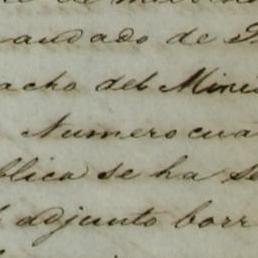 audado de
acho del Minis
Numero cua
blica se ha se
adjunto borr